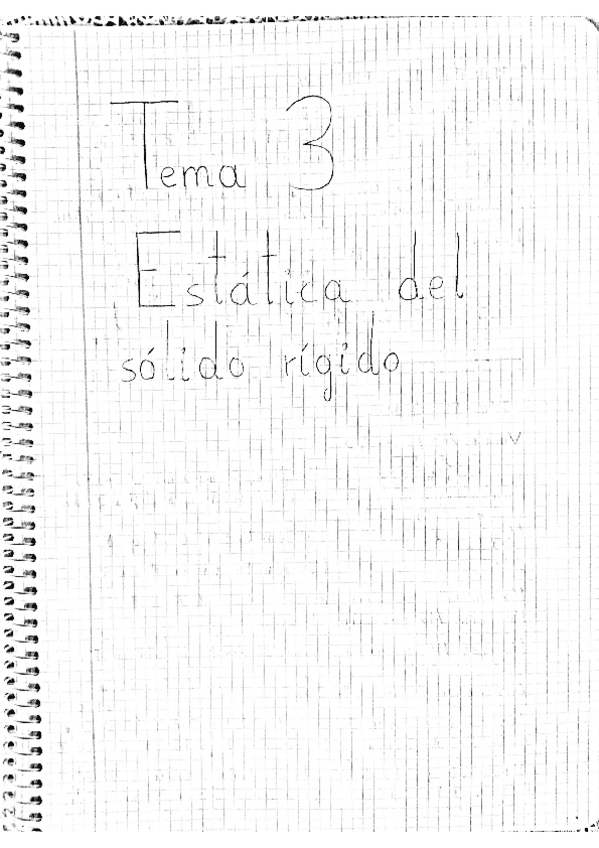 Tema 3
Estática del
sólido rígido